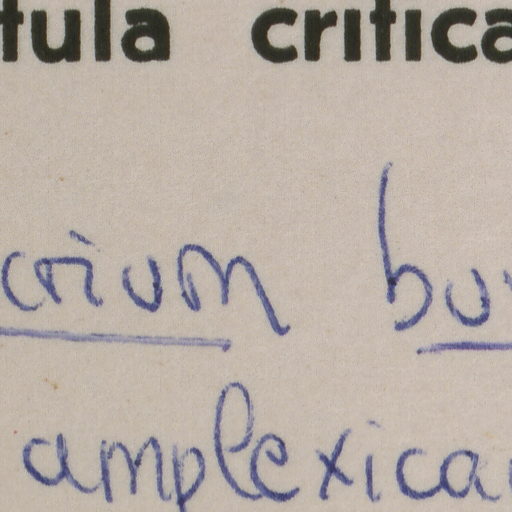 tula critica
crium bu
amplexica